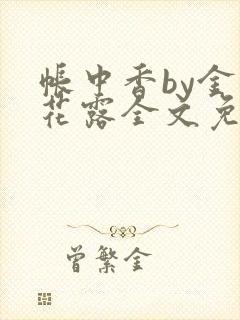 帐中香by金
花露全文免
曾繁金